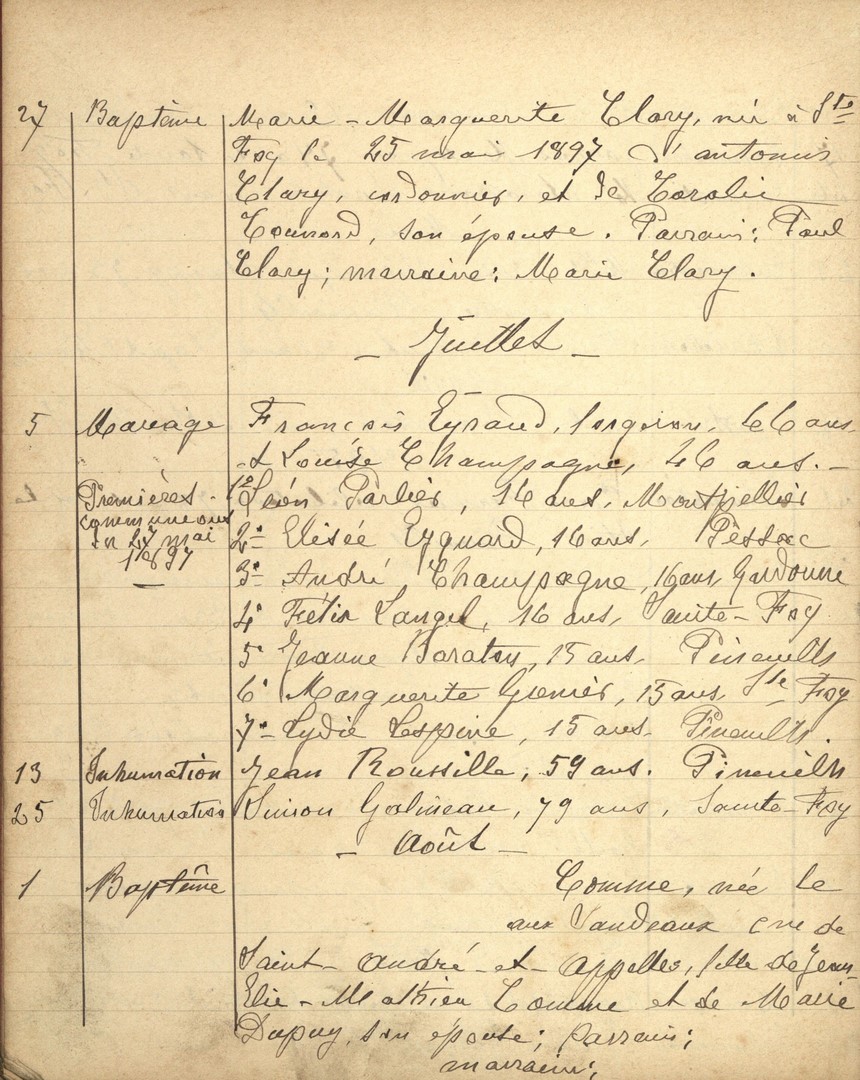 27 Baptême Marie-Marguerite Clary, née à Ste
Foy le 25 mai 1897 d'antonin
Clary, cordonnier, et de Coralie
son épouse. Parrain: Paul
Clary; marraine: Marie Clary.
- Juillet -
5 Mariage François Eyraud, forgeron, 66 ans
et Louise Champagne, 46 ans. -
Premières - 1º Léon Parlier, 16 ans, Montpellier
communions 2º Elisée Eyquard, 16 ans, Pessac
du 27 mai
1897 3º André Champagne, 16 ans, Gardonne
4º Félix Langel, 16 ans, Sainte-Foy
5º Jeanne Baraton, 15 ans, Pineuilh
6º Marguerite Grenier, 15 ans, Ste Foy
7º Lydie Lespine, 15 ans. Pineuilh.
13 Inhumation Jean Roussille, 59 ans. Pineuilh
25 Inhumation Simon Galineau, 79 ans, Sainte-Foy
- Août -
1 Baptême Comme, née le
aux Vandeaux cne de
Saint-André-et-Appelles, fille de Jean-
Elie-Mathieu Comme et de Marie
Dupuy, son épouse; parrain;
marraine;